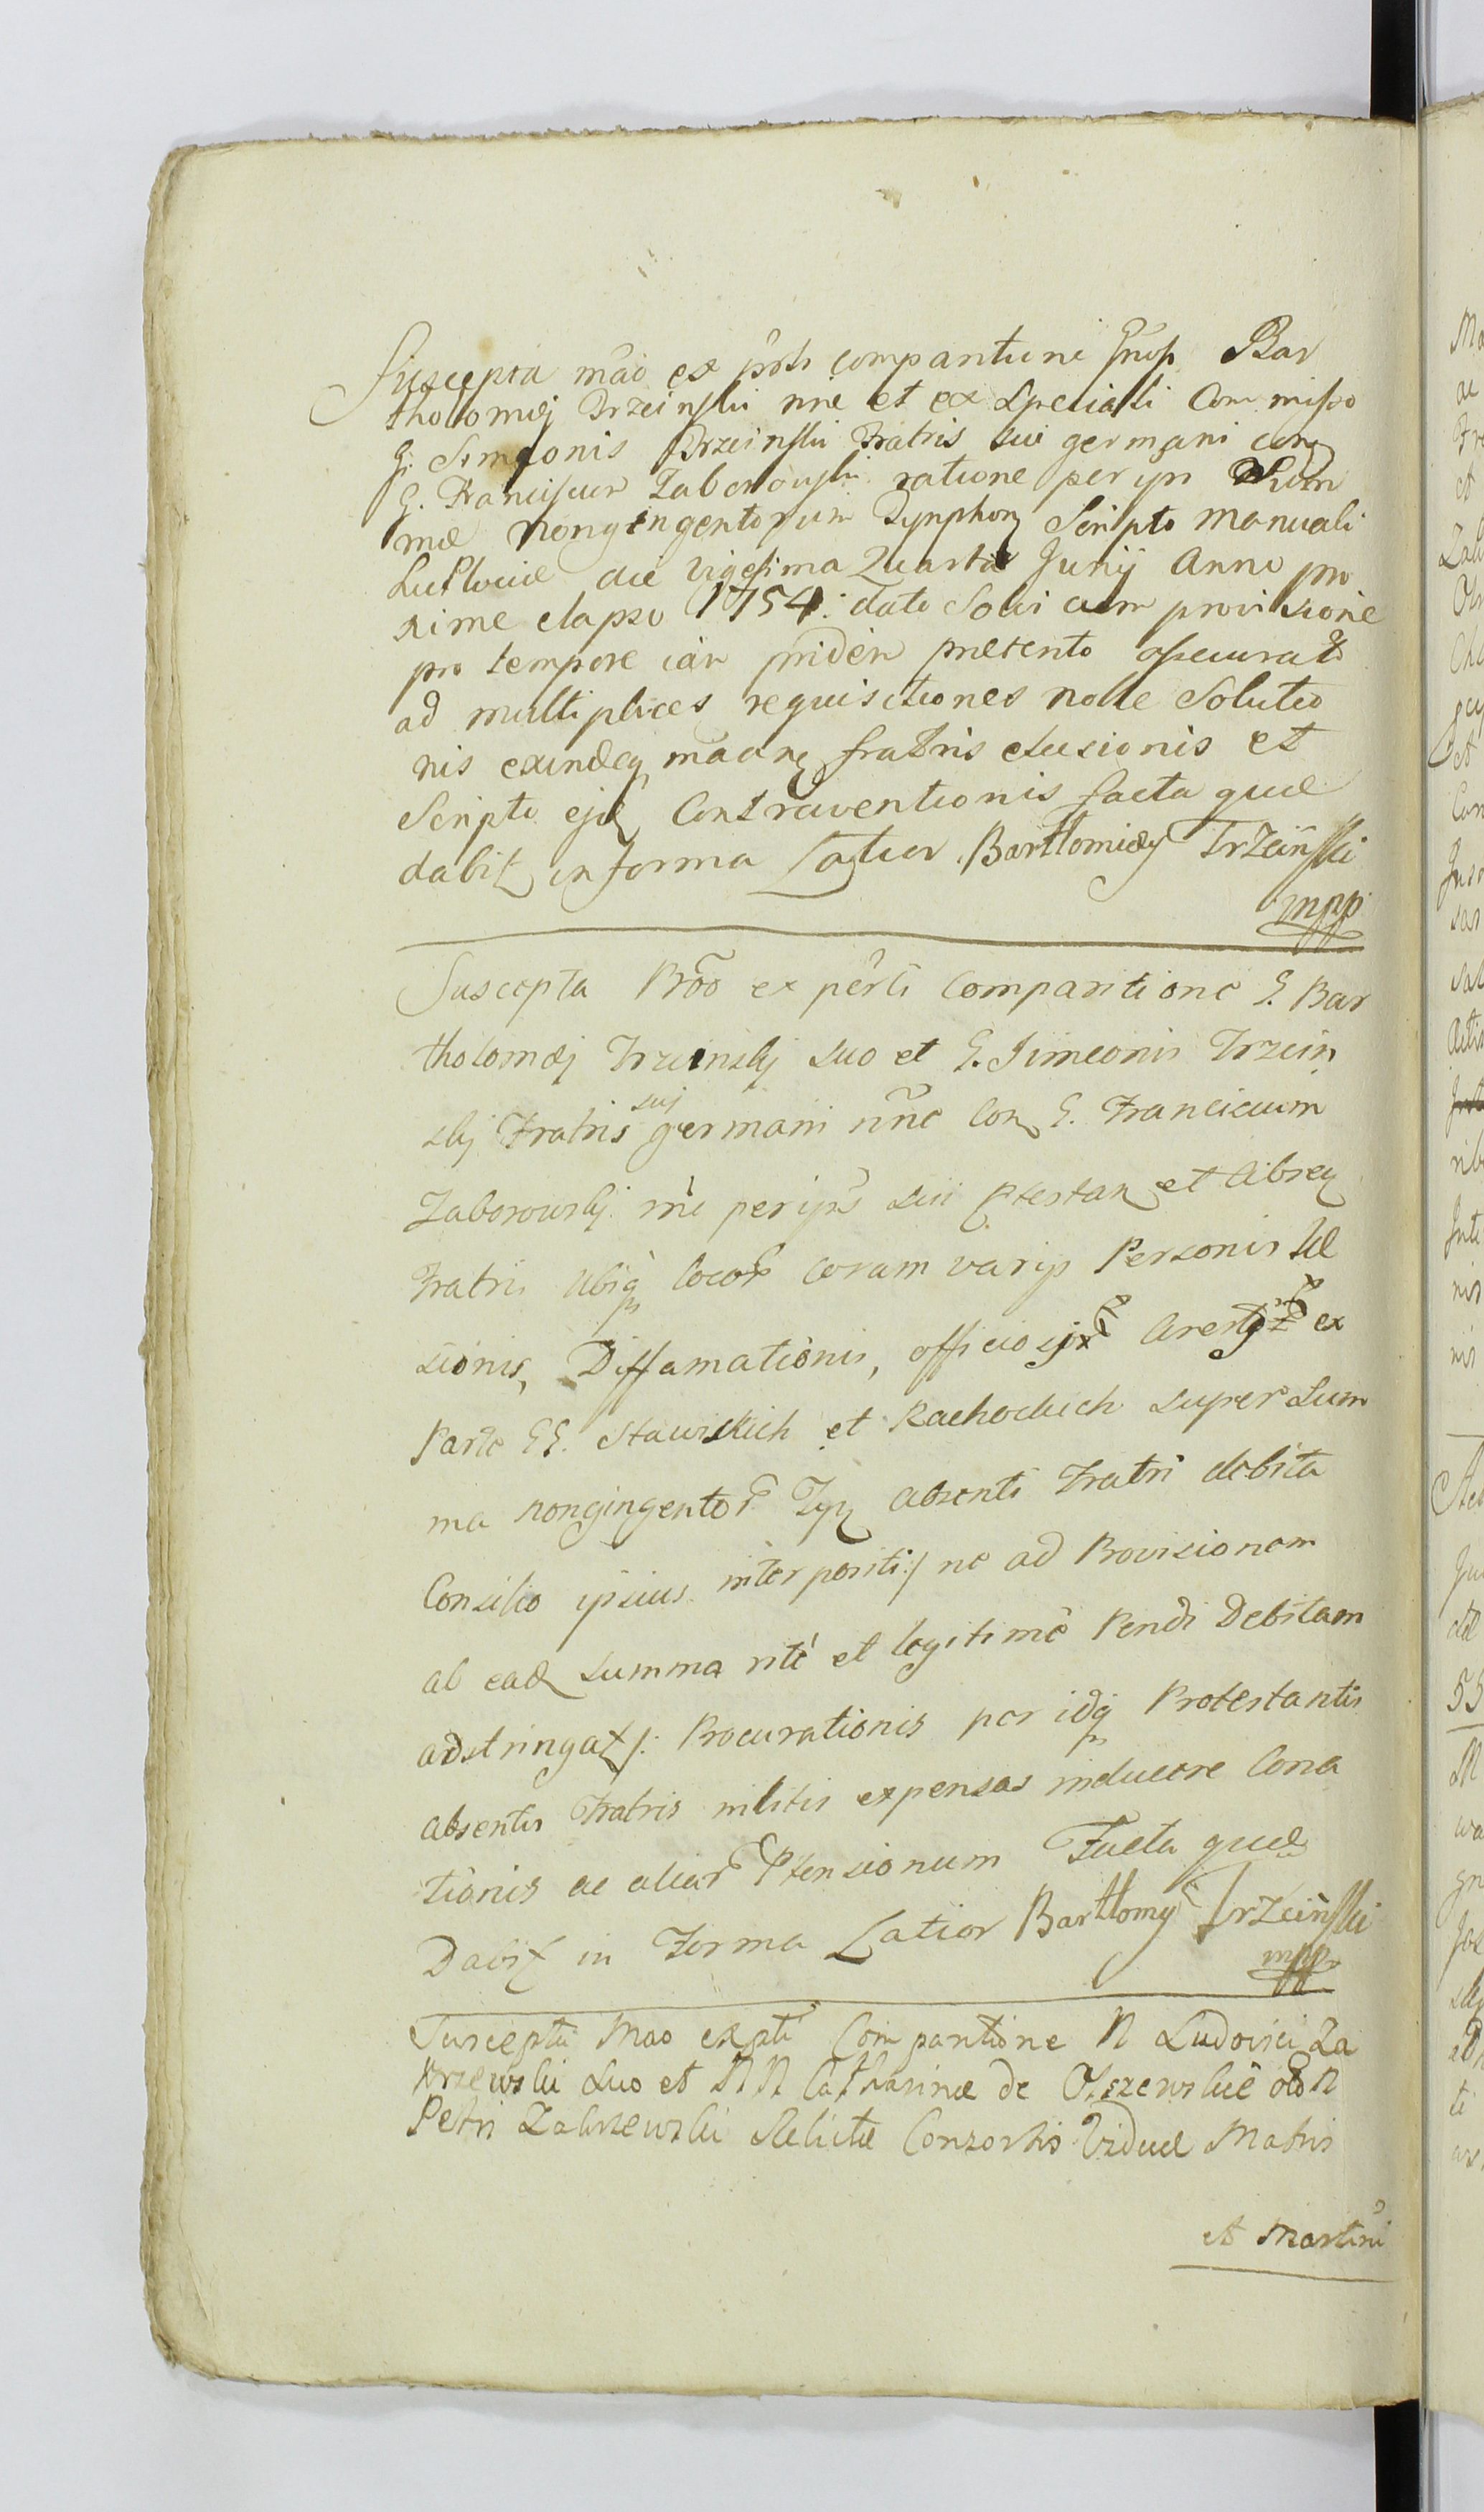 Suscepta mão ex prti comparitione Grosi Bar
tholomiej Trzcinski nne et ex Speciali Commisso
G. Simeonis Trzcinski Fratris sui germani con
G. Franciscum Zaborowski ratione per ipsu Sum
mæ Nongingentorum Tynphon Scripto Manuali
die Vigesima Quarta Junij Anno pro
xime elapso 1754. dato Solvi cum provisione
pro tempore iam pridem præterito assecurato
ad multiplices requisitiones nolle Solutio
nis exindeq fratris elusionis et
Scripto ejd Contraventionis facta quæ
dabit in forma Latior Bartłomiey Trzcinski
mpp
Suscepta Prõo ex perti Comparitione G. Bar
tholomæj Trzcinskj suo et G. Simeonis Trzcin
skj Fratris suj germani nne Con G. Franciscum
Zaborowskj per ipsu sui Ptestan et Absen
Fratris Ubiq locor coram varijs Personis Læ
sionis, Diffamationis, officiosi Arest ex
Parte GG. Stawiskich et Rachockich super Sum
ma nongingentor Tyn absenti Fratri debita
Consilio ipsius interpositi:/ ne ad Provisionem
ab ead summa rité et legitimé Pendi Debitam
adstringat/: Procurationis per idq Protestantis
absentis Fratris inlitis expensas inducere Cona
tionis ac aliar Ptensionum Facta quæ
Dabit in Forma Latior Bartłomy Trzcinski
mpp
Suscepta Mao ex pti Comparitione N Ludovici Za
krzewski suo et NN Catharinæ de Olszewskie olo N
Petri Zakrzewski Relictæ Consortis Viduæ Matris
et Martini